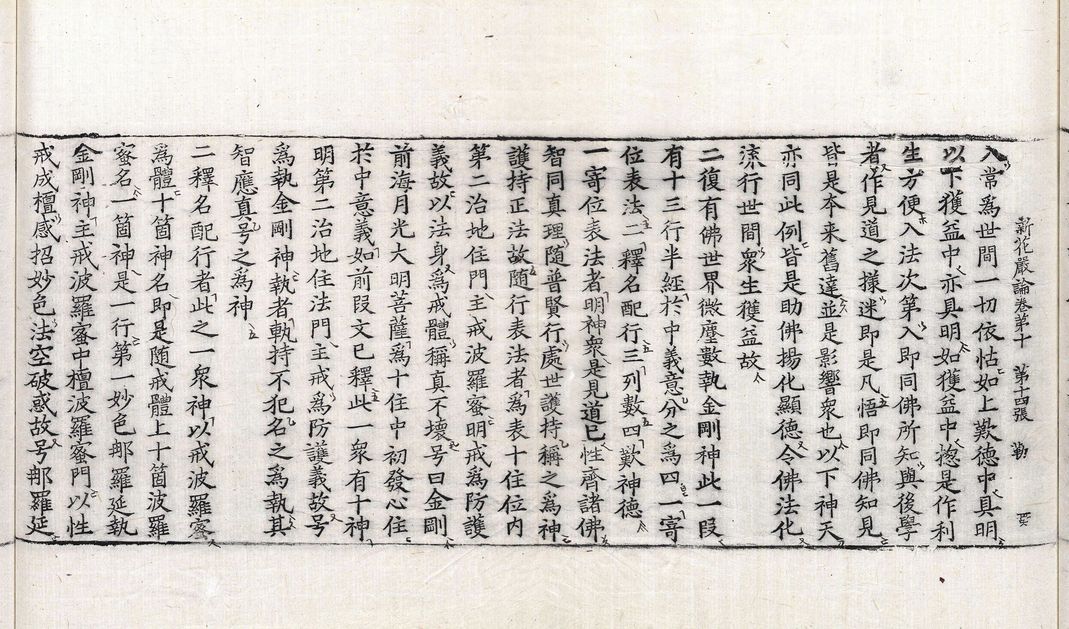 新花嚴論卷第十 第十四張 勒
入常為世間一切依怙如上歎德中具明
以下獲益中亦具明如獲益中揔是作利
生方便入法次第入即同佛所知與後學
者作見道之㨾迷即是凡悟即同佛知見
皆是夲来舊達並是影響衆也以下神天
亦同此例皆是助佛揚化顯德令佛法化
流行世間衆生獲益故
二復有佛世界微塵數執金剛神此一段
有十三行半經於中義意分之為四一寄
位表法二釋名配行三列數四歎神德
一寄位表法者明神衆是見道已性齊諸佛
智同真理隨普賢行處世護持稱之為神
護持正法故隨行表法者為表十住位内
第二治地住門主戒波羅蜜明戒為防護
義故以法身為戒體稱真不壞号曰金剛
前海月光大明菩薩為十住中初發心住
於中意義如前段文已釋此一衆有十神
明第二治地住法門主戒為防護義故号
為執金剛神執者執持不犯名之為執其
智應真号之為神
二釋名配行者此之一衆神以戒波羅蜜
為體十箇神名即是随戒體上十箇波羅
蜜名一箇神是一行第一妙色那羅延執
金剛神主戒波羅蜜中檀波羅蜜門以性
戒成檀感招妙色法空破惑故号那羅延